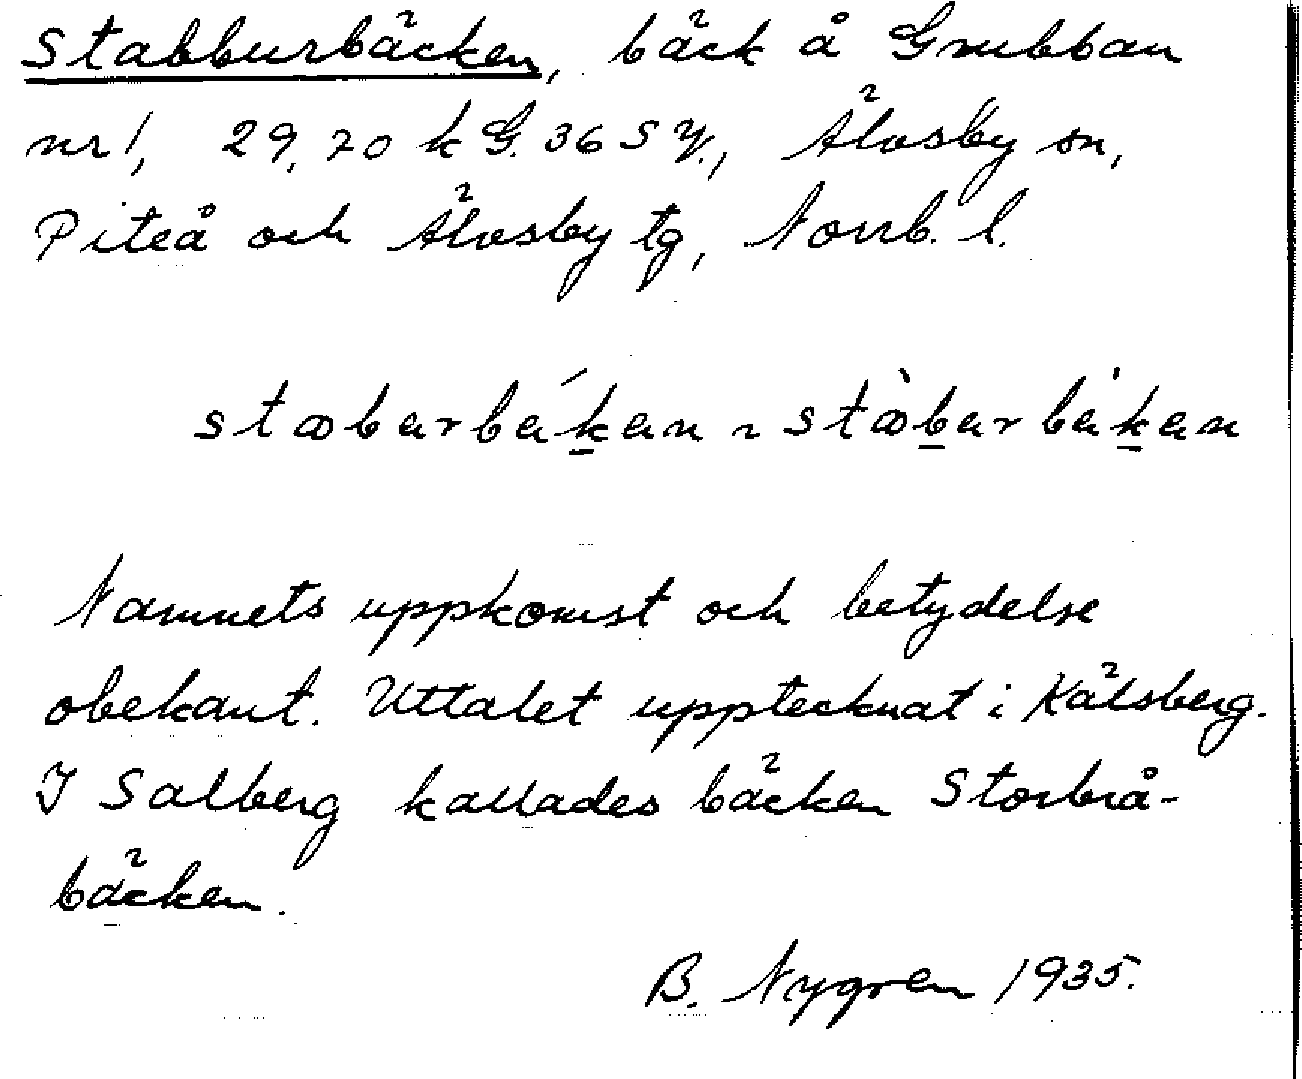 Stabburbäcken, bäck å Grubban
nr 1, 29,70 k G. 36 S Y., Älvsby sn,
Piteå och Älvsby tg, Norrb. l.
stæburbäkan ~ stæ̀burbäkan
Namnets uppkomst och betydelse
obekant. Uttalet upptecknat i Kälsberg.
I Salberg kallades bäcken Storbrå-
bäcken.
B. Nygren 1935.